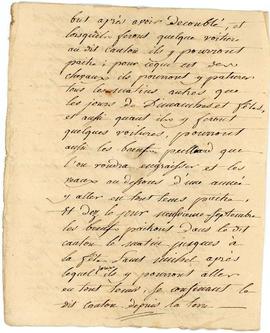 but après avoir decoublé, et
lorsquils feront quelque voiture
au dit canton ils y pourront
paître; pour ceque est des
chevaux ils pourront y paturer
tous les matins autres que
les jours de Dimanches et fêtes,
et aussi quant ils y feront
quelques voitures, pourront
aussi les bœufs que
l'on voudra engraisser et les
veaux au dessous d'une année
y aller en tout tems paitre,
Et dez le jour septembre
les bœufs paitront dans le dit
canton le matin jusques à
la fête Saint michel après
lequel jour ils y pourront aller
en tout tems, se confinant le
dit canton depuis la